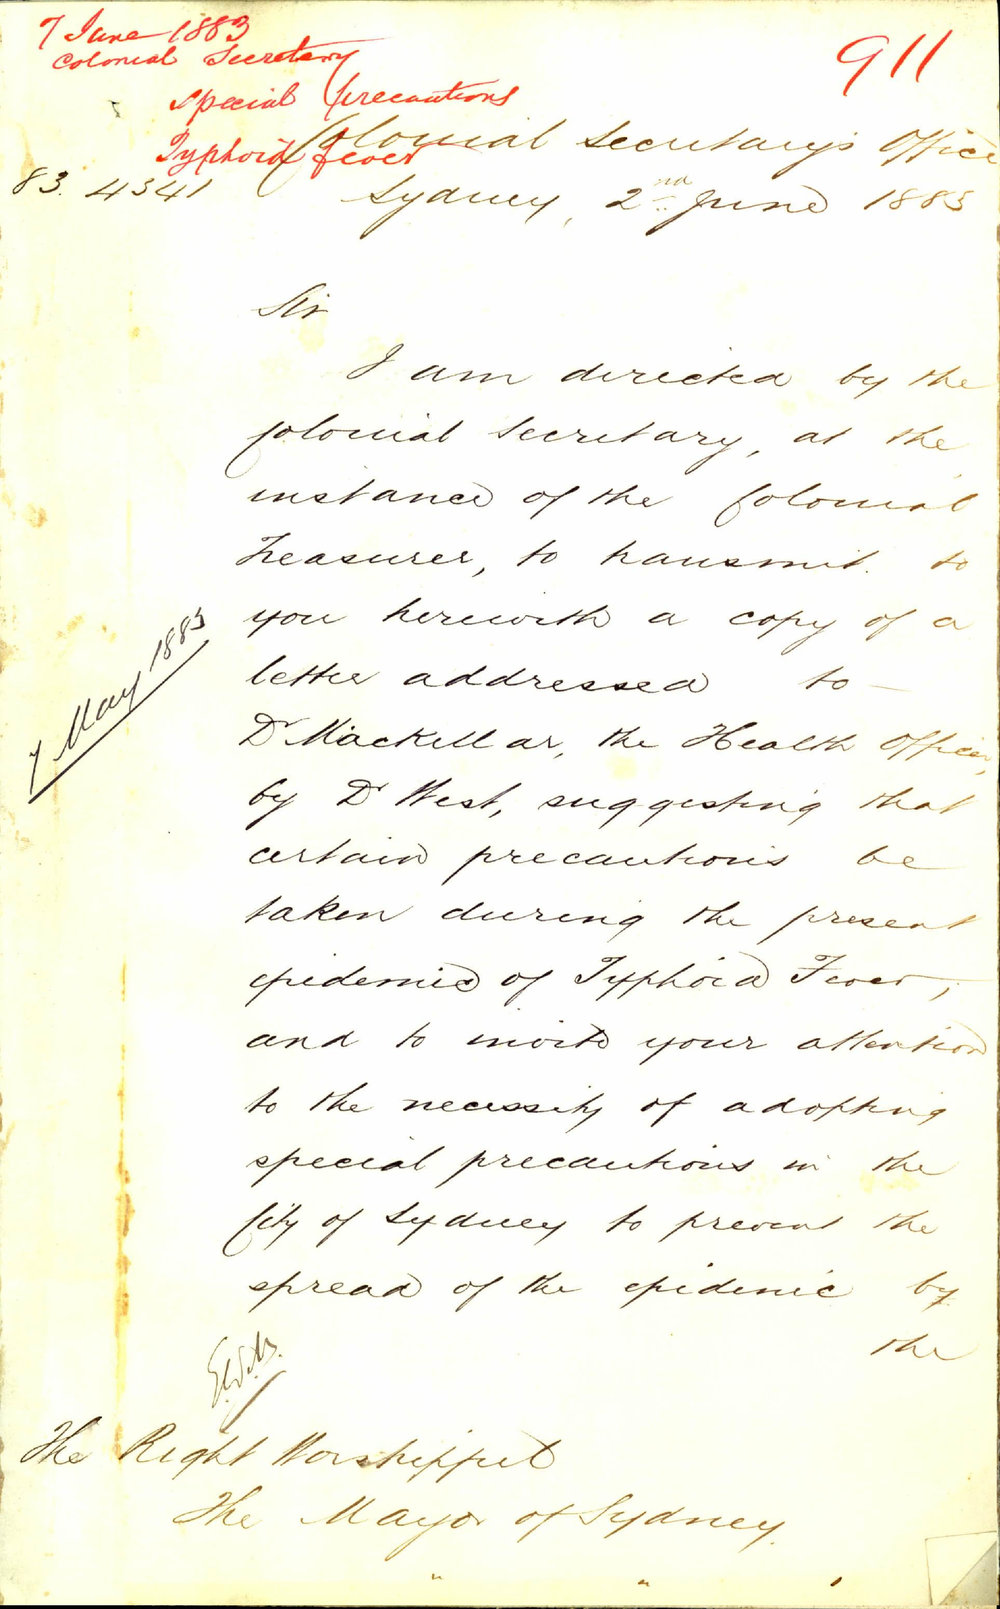 7 June 1883
Colonial Secretary
911
Special precautions
Typhoid Fever
Colonial Secretary's Office
83. 4341
Sydney, 2nd June 1883
Sir
I am directed by the
Colonial Secretary, at the
instance of the Colonial
Treasurer, to transmit to
you herewith a copy of a
7 May 1883
letter addressed to
Dr Mackellar, the Health Officer,
by Dr West, suggesting that
certain precautions be
taken during the present
epidemic of Typhoid Fever,
and to invite your attention
to the necessity of adopting
special precautions in the
City of Sydney to prevent the
spread of the epidemic by
the
The Right Worshipful
The Mayor of Sydney.